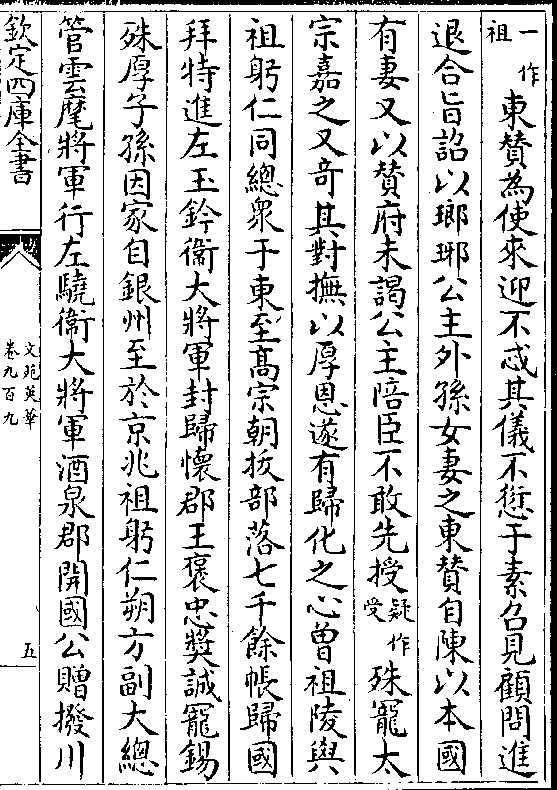 一作祖東贊為使來迎不忒其儀不愆于素召見顧問進
退合旨詔以瑯琊公主外孫女妻之東贊自陳以本國
有妻又以贊府未謁公主陪臣不敢先授疑作受殊寵太
宗嘉之又奇其對撫以厚恩遂有歸化之心曽祖陵與
祖躬仁同總衆于東至髙宗朝拔部落七千餘帳歸國
拜特進左玉鈐衞大將軍封歸懷郡王褒忠奬誠寵錫
殊厚子孫因家自銀州至於京兆祖躬仁朔方副大總
管雲麾將軍行左驍衞大將軍酒泉郡開國公贈撥川
欽定四庫全書
文苑英華
卷九百九
五